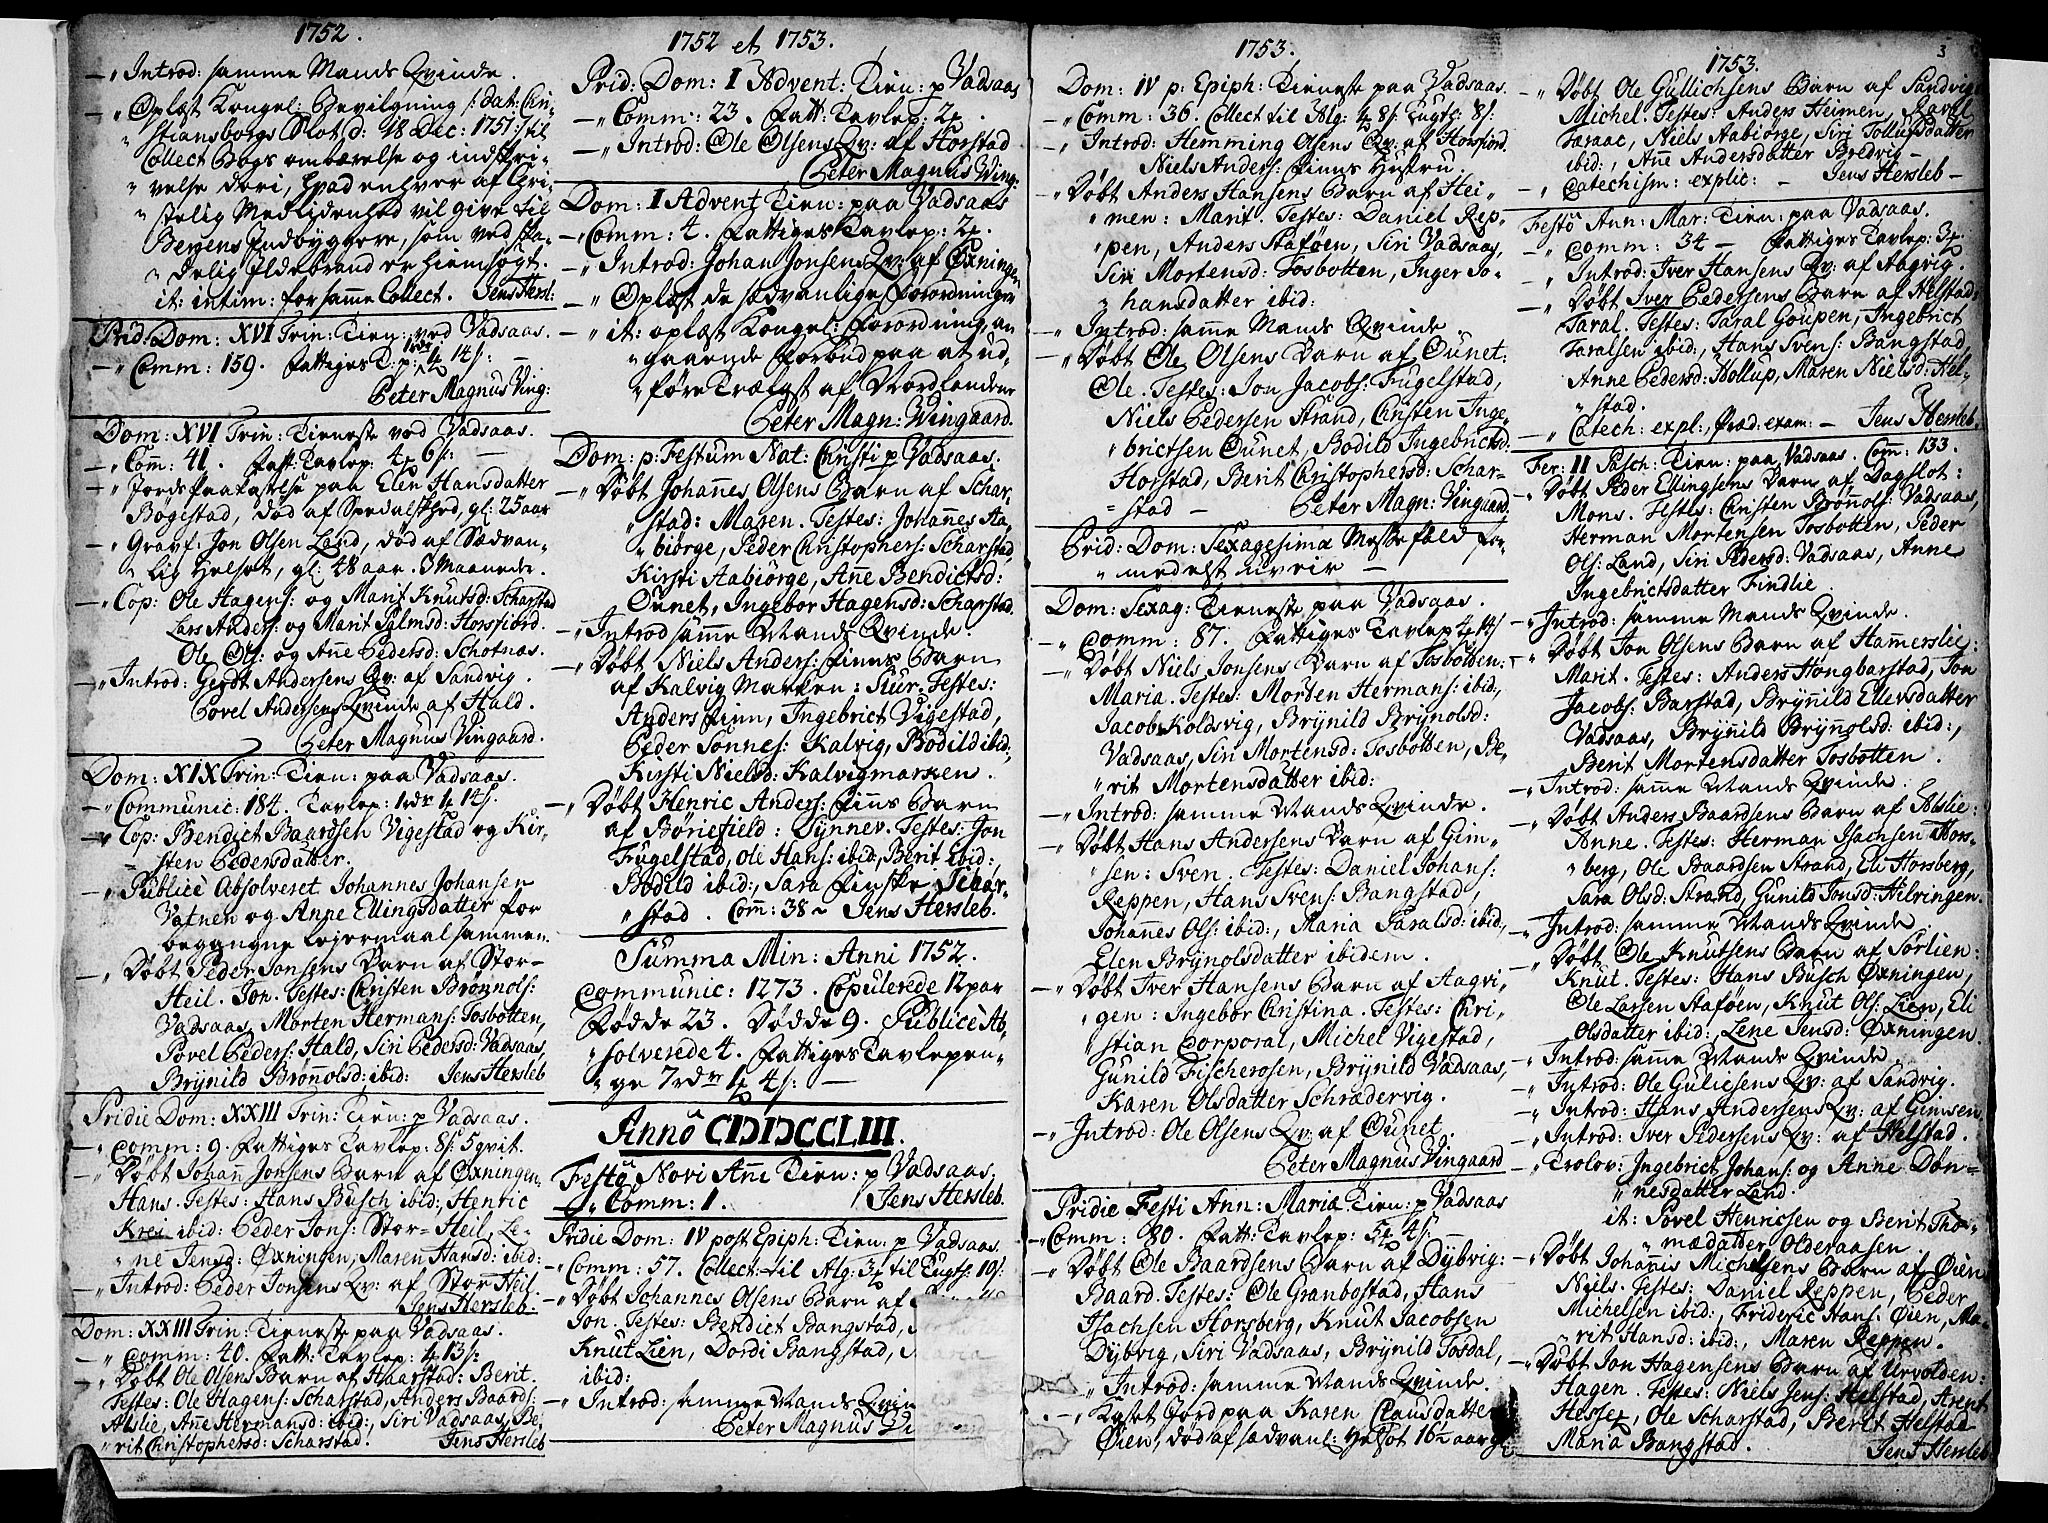 1752.
— „ Introd: samme Mands Qvinde.
— „ Oplæst Kongel: Bevilgning /: dat: Chri-
„ stiansborgs Slot d: 18 Dec: 1751 :/ til
Collect Bogs ombærelse og indskri-
„ velse deri, hvad enhver af Chri-
„ stelig Medlidenhed vil give til
Bergens Indbyggere, som ved ska-
„ delig Ildebrand er hiemsøgt.
it: intim: for samme Collect. Jens Hersl:
Prid: Dom: XVI Trin: Tien: ved Vadsaas.
— „ Comm: 159. Fattiges T: p: 14 s:
Peter Magnus Ving:
Dom: XVI Trin: Tieneste ved Vadsaas.
— „ Com: 41. Fatt: Tavlep: 4 6 s: —
— „ Jords paakastelse paa Elen Hansdatter
Bogestad, død af Spedalskhed, gl: 25 aar
— „ Gravf: Jon Olsen Land, død af Sædvan-
„ lig Helsot, gl: 48 aar. 3 Maaneder.
— „ Cop: Ole Hagens: og Marit Knutsd: Scharstad
Lars Anders: og Marit Palmsd: Horsfiord.
Ole Ols: og Anne Pedersd: Schotnæs.
— „ Introd: Gerdt Andersens Qv: af Sandvig.
Povel Andersens Qvinde af Hald.
Peter Magnus Vingaard.
Dom: XIX Trin: Tien: paa Vadsaas.
— „ Communic: 184. Tavlep: 1 rdr 14 s.
— „ Cop: Bendict Baardsen Vigestad og Kir-
„ sten Pedersdatter.
— „ Publicè Absolveret Johannes Johansen
Vatnen og Anne Ellingsdatter for
begangne Lejermaal sammen.
— „ Døbt Peder Jonsens Barn af Stor-
Heil. Jon. Testes: Christen Brønnols:
Vadsaas, Morten Hermans: Tosbotten,
Povel Peders: Hald, Siri Pedersd: Vadsaas,
Brÿnild Brønnolsd: ibid: Jens Hersleb
Pridie Dom: XXIII Trin: Tien: p Vadsaas.
— „ Comm: 9. Fattiges Tavlep: 8 s: 5 qvit.
— „ Døbt Johan Jonsens Barn af Øxningen.
Hans. Testes: Hans Busch ibid:, Henric
Krei ibid: Peder Jons: Stor-Heil, Le-
„ ne Jensd: Øxningen, Maren Hansd: ibid:
— „ Introd: Peder Jonsens Qv: af Stor Heil.
Jens Hersleb.
Dom: XXIII Trin: Tieneste paa Vadsaas.
— „ Comm: 40. Fatt: Tavlep: 4 13 s:
— „ Døbt Ole Olsens Barn af Haarstad: Berit.
Testes: Ole Hagens: Scharstad, Anders Baards:
Alslie, Anne Hermansd: ibid:, Siri Vadsaas, Be-
„ rit Christophersd: Scharstad. Jens Hersleb
1752 et 1753.
Prid: Dom: I Advent: Tien: p Vadsaas
— „ Comm: 23. Fatt: Tavlep: 2
— „ Introd: Ole Olsens Qv: af Horstad
Peter Magnus Wing:
Dom: I Advent Tien: paa Vadsaas
— „ Comm: 4. Fattiges Tavlep: 2
— „ Introd: Johan Jonsens Qv: af Øxningen
— „ Oplæst de sædvanlige Forordninger
— „ it: oplæst Kongel: Forordning, an
„ gaaende Forbud paa at ud-
„ føre Trælast af Nordlandene
Peter Magn: Wingaard.
Dom: p: Festum Nat: Christi p Vadsaas.
— „ Døbt Johannes Olsens Barn af Schar-
„ stad: Maren. Testes: Johannes Aa-
„ biørge, Peder Christophers: Scharstad,
Kirsti Aabiørge, Anne Bendictsd:
Ounet, Ingebor Hagensd: Scharstad.
— „ Introd samme Mands Qvinde.
— „ Døbt Niels Anders: Finns Barn
af Kalvig Marken: Siur. Testes:
Anders Finn, Ingebrict Vigestad,
Peder Sonnes: Kalvig, Bodild ibid:,
Kirsti Nielsd: Kalvigmarken.
— „ Døbt Henric Anders: Finns Barn
af Børiefield: Synnev. Testes: Jon
Frugelstad, Ole Hans: ibid:, Berit ibid:,
Bodild ibid:, Sara Finske Schar-
„ stad. Com: 38 ~ Jens Hersleb.
Summa Min: Anni 1752.
Communic: 1273. Copulerede 12 par
Fødde 23. Dødde 9. Publicè Ab-
„ solverede 4. Fattiges Tavlepen-
„ ge 7 rdr 1 4 s: —
Annô CIƆIƆCCLIII.
Festô Novi Anni Tien: p Vadsaas,
— „ Comm: 1. Jens Hersleb.
Pridie Dom: IV post Epiph: Tien: p Vadsaas
— „ Comm: 57. Collect: til Alg: 3 til Tugts: 10 s:
— „ Døbt Johannes Olsens Barn af
Jon. Testes: Bendict Bangstad,
Knut Lien, Dordi Bangstad,
ibid:
— „ Introd: samme Mands Qvin
Peter Magnus Vi
1753.
Dom: IV p: Epiph: Tieneste paa Vadsaas.
— „ Comm: 36. Collect til Alg: 8 s: Tugts: 8 s:
— „ Introd: Hemming Olsens Qv: af Horsfiord.
Niels Anders: Finns Hustru
— „ Døbt Anders Hansens Barn af Hei-
„ men: Marit. Testes: Daniel Rep-
„ pen, Anders Staføen, Siri Vadsaas,
Siri Mortensd: Tosbotten, Inger Jo-
„ hansdatter ibid:
— „ Introd: samme Mands Qvinde
— „ Døbt Ole Olsens Barn af Ounet:
Ole. Testes: Jon Jacobs: Frugelstad,
Niels Pedersen Strand, Christen Inge-
„ brictsen Ounet, Bodild Ingebrictsd:
Horstad, Berit Christophersd: Schar-
„ stad — Peter Magn: Vingaard.
Prid: Dom: Sexagesimæ Messefald for-
„ medelst uveir —
Dom: Sexag: Tieneste paa Vadsaas.
— „ Comm: 87. Fattiges Tavlep 14 s
— „ Døbt Niels Jonsens Barn af Tosbotten:
Maria. Testes: Morten Hermans: ibid:,
Jacob Koldsvig, Brÿnild Brÿnolsd:
Vadsaas, Siri Mortensd: Tosbotten, Be-
„ rit Mortensdatter ibid:
— „ Introd: samme Mands Qvinde.
— „ Døbt Hans Andersens Barn af Gim-
„ sen: Sven. Testes: Daniel Johans:
Reppen, Hans Svens: Bangstad,
Johannes Ols: ibid:, Maria Taralsd: ibid:,
Elen Brÿnolsdatter ibidem.
— „ Døbt Iver Hansens Barn af Aagvi-
„ gen: Ingebor Christina. Testes: Chri-
„ stian Corporal, Michel Vigestad,
Gunild Fischerosen, Brÿnild Vadsaas,
Karen Olsdatter Schrædervig.
— „ Introd: Ole Olsens Qv: af Ounet.
Peter Magnus Vingaard
Pridie Festi Ann: Mariæ Tien: p Vadsaas
— „ Comm: 80. Fatt: Tavlep: 5 4 s:
— „ Døbt Ole Baardsens Barn af Dÿbvig:
Baard. Testes: Ole Granbostad, Hans
Hachsen Horsberg, Knut Jacobsen
Dÿbvig, Siri Vadsaas, Brÿnild Tosdal,
„ Introd: samme Mands Qvinde.
— „ Kastet Jord paa Karen Clausdatter
Øien, død af sædvanl: Helsot 16½ aar gl:
3
1753.
— „ Døbt Ole Gullichsens Barn af Sandvig
Michel. Testes: Anders Heimen, Haral
Taraac, Niels Aabiørge, Siri Tollufsdatter
ibid:, Anne Andersdatter Bredvig —
— „ Catechism: explic: — Jens Hersleb —
Festô Ann: Mar: Tien: paa Vadsaas.
— „ Comm: 34 — Fattiges Tavlep: 3
— „ Introd: Iver Hansens Qv: af Aagvig.
— „ Døbt Iver Pedersens Barn af Helstad:
Taral. Testes: Taral Goupen, Ingebrict
Taralsen ibid:, Hans Svens: Bangstad,
Anne Pedersd: Hollup, Maren Nielsd: Hel-
„ stad.
— „ Catech: expl:, Præd: exam: — Jens Hersleb
Fer: II Pasch: Tien: paa Vadsaas. Com: 133.
— „ Døbt Peder Ellingsens Barn af Dagslot:
Mons. Testes: Christen Brønnols: Vadsaas,
Herman Mortensen Tosbotten, Peder
Ols: Land, Siri Pedersd: Vadsaas, Anne
Ingebrictsdatter Findlie.
— „ Introd: samme Mands Qvinde.
— „ Døbt Jon Olsens Barn af Hammerslie:
Marit. Testes: Anders Hongbarstad, Jon
Jacobs: Barstad, Brÿnild Ellersdatter
Vadsaas, Brÿnild Brÿnnolsd: ibid:,
Berit Mortensdatter Tosbotten.
— „ Introd: samme Mands Qvinde.
— „ Døbt Anders Baardsens Barn af Alslie:
Anne. Testes: Herman Hachsen Hors-
„ berg, Ole Baardsen Strand, Eli Horsberg,
Sara Olsd: Strand, Gunild Jonsd: Helringen.
— „ Introd: samme Mands Qvinde
— „ Døbt Ole Knutsens Barn af Sørlien:
Knut. Testes: Hans Busch Øxningen,
Ole Larsen Staføen, Knut Ols: Lien, Eli
Olsdatter ibid:, Lene Jensd: Øxningen.
— „ Introd: samme Mands Qvinde.
— „ Introd: Ole Guliesens Qv: af Sandvig.
— „ Introd: Hans Andersens Qv: af Gimsen
— „ Introd: Iver Pedersens Qv: af Helstad.
— „ Trolov: Ingebrict Johans: og Anne Døn-
„ nesdatter Land.
it: Povel Henricsen og Berit Tho-
„ mædatter Olderaasen.
— „ Døbt Johannis Michelsens Barn af Øien
Niels. Testes: Daniel Reppen, Peder
Michelsen ibid:, Frideric Hans: Øien, Ma-
„ rit Hansd: ibid:, Maren Reppen.
— „ Døbt Jon Hagensens Barn af Urvolden:
Hagen. Testes: Niels Jens: Helstad, Arent
Hesset, Ole Scharstad, Berit Helstad
Maria Bangstad. Jens Hersleb